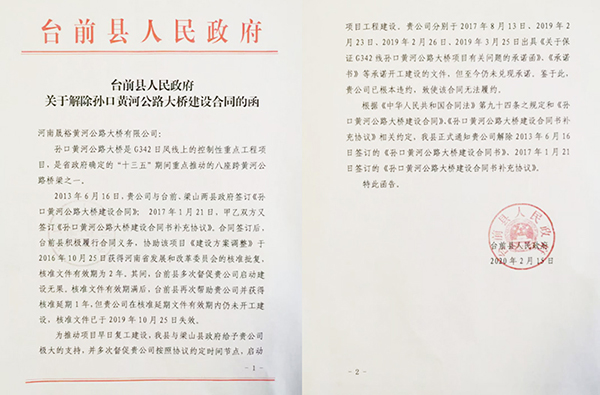 台前县人民政府
台前县人民政府
关于解除孙口黄河公路大桥建设合同的函
河南晟裕黄河公路大桥有限公司：
孙口黄河公路大桥是G342日凤线上的控制性重点工程项
目，是省政府确定的“十三五”期间重点推动的八座跨黄河公
路桥梁之一。
2013年6月16日，贵公司与台前、梁山两县政府签订《孙
口黄河公路大桥建设合同》；2017年1月21日，甲乙双方又
签订《孙口黄河公路大桥建设合同书补充协议》。合同签订后，
台前县积极履行合同义务，协助该项目《建设方案调整》于
2016年10月25日获得河南省发展和改革委员会的核准批复，
核准文件有效期为2年。其间，台前县多次督促贵公司启动建
设无果。核准文件有效期满后，台前县再次帮助贵公司并获得
核准延期1年，但贵公司在核准延期文件有效期内仍未开工建
设，核准文件已于2019年10月25日失效。
为推动项目早日复工建设，我县与梁山县政府给予贵公司
极大的支持，并多次督促贵公司按照协议约定时间节点，启动
- 1 -
项目工程建设。贵公司分别于2017年8月13日、2019年2
月23日、2019年2月26日、2019年3月25日出具《关于保
证G342线孙口黄河公路大桥项目有关问题的承诺函》、《承诺
书》等承诺开工建设的文件，但至今仍未兑现承诺。鉴于此，
贵公司已根本违约，致使该合同无法履约。
根据《中华人民共和国合同法》第九十四条之规定和《孙
口黄河公路大桥建设合同》、《孙口黄河公路大桥建设合同书补
充协议》相关约定，我县正式通知贵公司解除2013年6月16
日签订的《孙口黄河公路大桥建设合同书》、2017年1月21
日签订的《孙口黄河公路大桥建设合同书补充协议》。
特此函告。
台前县人民政府
台前县人民政府
2020年2月15日
- 2 -